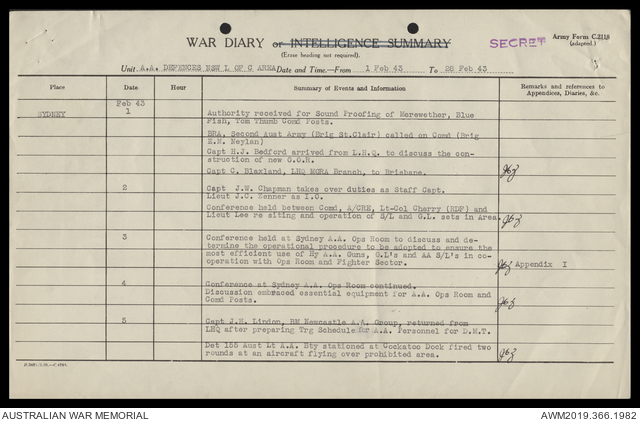 WAR DIARY or INTELLIGENCE SUMMARY
SECRET
Army Form C.2118
(adapted.)
(Erase heading not required).
Unit A.A. DEFENCES NSW L OF C AREA Date and Time.—From 1 Feb 43 To 28 Feb 43
Place Date Hour Summary of Events and Information Remarks and references to
Appendices, Diaries, &c.
Feb 43
SYDNEY 1 Authority received for Sound Proofing of Merewether, Blue
Fish, Tom Thumb Comd Posts.
BRA, Second Aust Army (Brig St.Clair) called on Comd (Brig
E.M. Neylan)
Capt H.J. Bedford arrived from L.H.Q. to discuss the con-
struction of new G.O.R.
Capt C. Blaxland, LHQ MGRA Branch, to Brisbane.
2 Capt J.W. Chapman takes over duties as Staff Capt.
Lieut J.C. Kenner as I.O.
Conference held between Comd, A/CRE, Lt-Col Cherry (RDF) and
Lieut Lee re siting and operation of S/L and G.L. sets in Area.
3 Conference held at Sydney A.A. Ops Room to discuss and de-
termine the operational procedure to be adopted to ensure the
most efficient use of Hy A.A. Guns, G.L's and AA S/L's in co-
operation with Ops Room and Fighter Sector. Appendix I
4 Conference at Sydney A.A. Ops Room continued.
Discussion embraced essential equipment for A.A. Ops Room and
Comd Posts.
5 Capt J.H. Lindon, BM Newcastle A.A. Group, returned from
LHQ after preparing Trg Schedule for A.A. Personnel for D.M.T.
Det 155 Aust Lt A.A. Bty stationed at Cockatoo Dock fired two
rounds at an aircraft flying over prohibited area.
AUSTRALIAN WAR MEMORIAL
AWM2019.366.1982